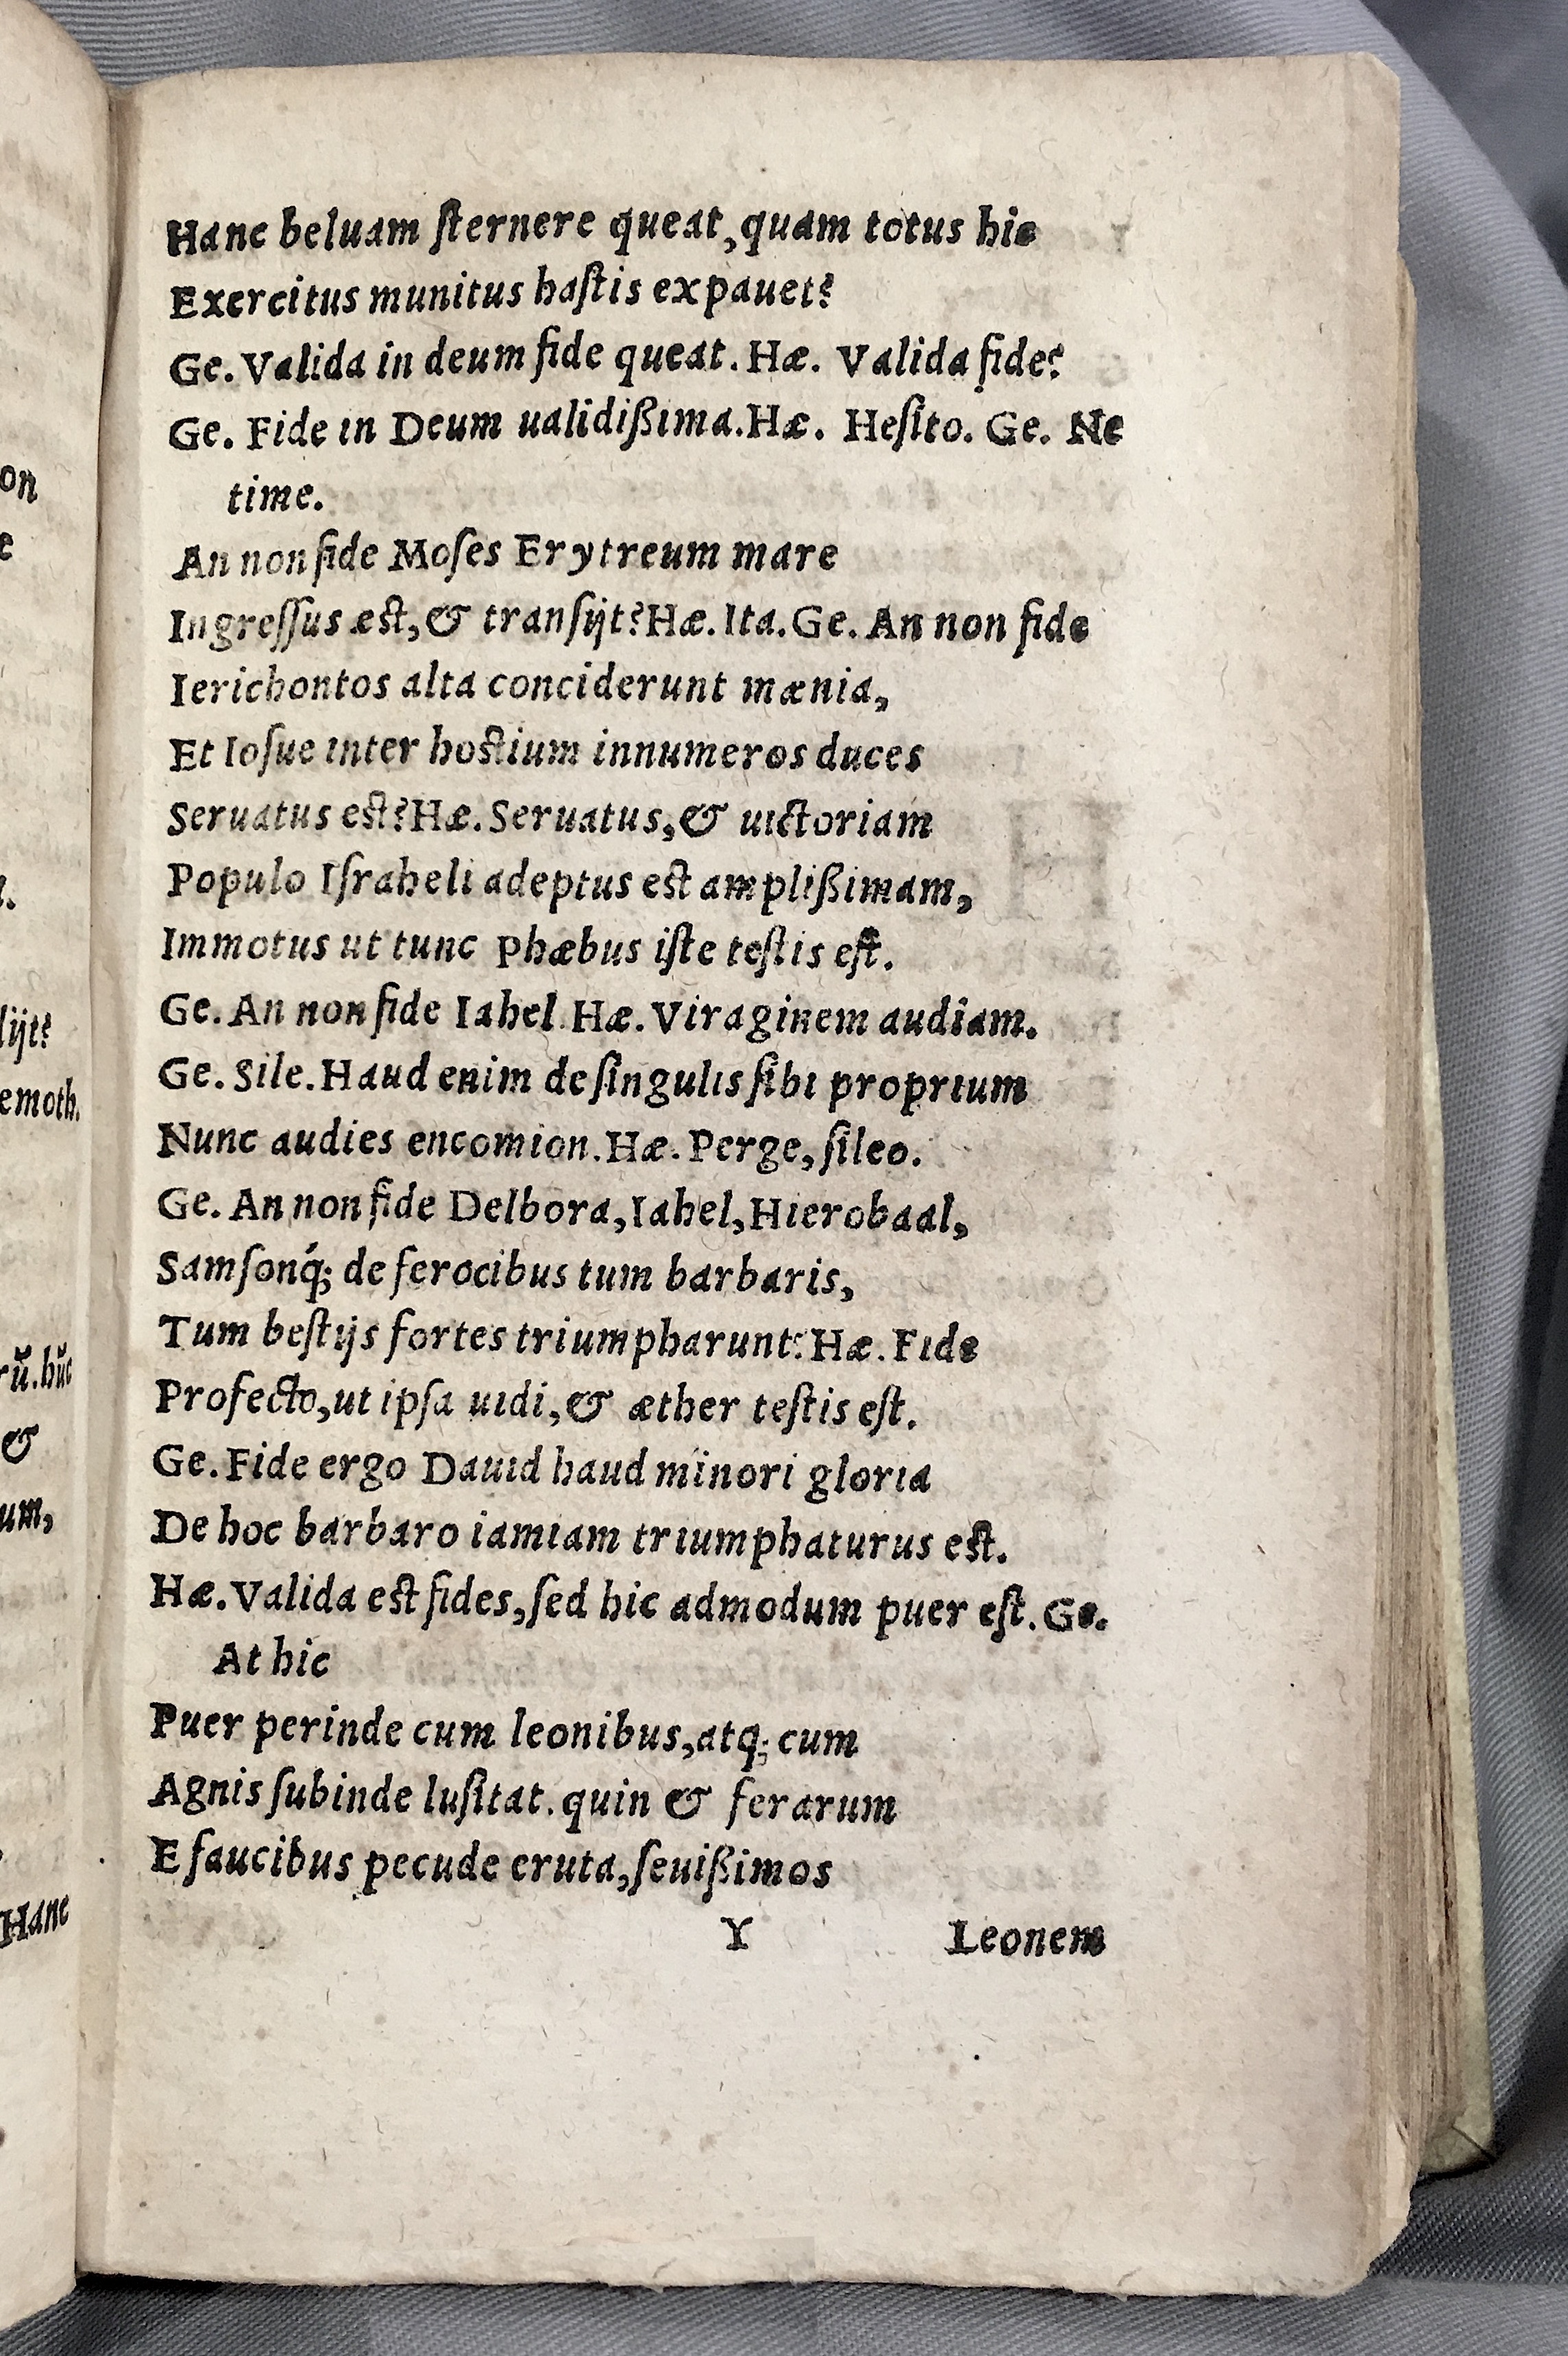 on
e
l.
lijt?
emoth.
rŭ. hŭc
&
um,
Hanc
Hanc beluam ſternere queat, quam totus hic
Exercitus munitus haſtis expauet?
Ge. Valida in deum fide queat. Hæ. Valida fide?
Ge. Fide in Deum ualidißima. Hæ. Heſito. Ge. Ne
time.
An non fide Moſes Erytreum mare
Ingreſſus eſt, & tranſijt? Hæ. Ita. Ge. An non fide
Ierichontos alta conciderunt mænia,
Et Ioſue inter hoſtium innumeros duces
Seruatus eſt? Hæ. Seruatus, & uictoriam
Populo Iſraheli adeptus eſt amplißimam,
Immotus ut tunc Phæbus iſte teſtis eſt.
Ge. An non fide Iahel. Hæ. Viraginem audiam.
Ge. Sile. Haud enim de ſingulis ſibi proprium
Nunc audies encomion. Hæ. Perge, ſileo.
Ge. An non fide Delbora, Iahel, Hierobaal,
Samſonq́; de ferocibus tum barbaris,
Tum beſtijs fortes triumpharunt? Hæ. Fide
Profecto, ut ipſa uidi, & æther teſtis eſt.
Ge. Fide ergo Dauid haud minori gloria
De hoc barbaro iamiam triumphaturus eſt.
Hæ. Valida eſt fides, ſed hic admodum puer eſt. Ge.
At hic
Puer perinde cum leonibus, atq; cum
Agnis ſubinde luſitat. quin & ferarum
E faucibus pecude eruta, ſeuißimos
Y Leonem